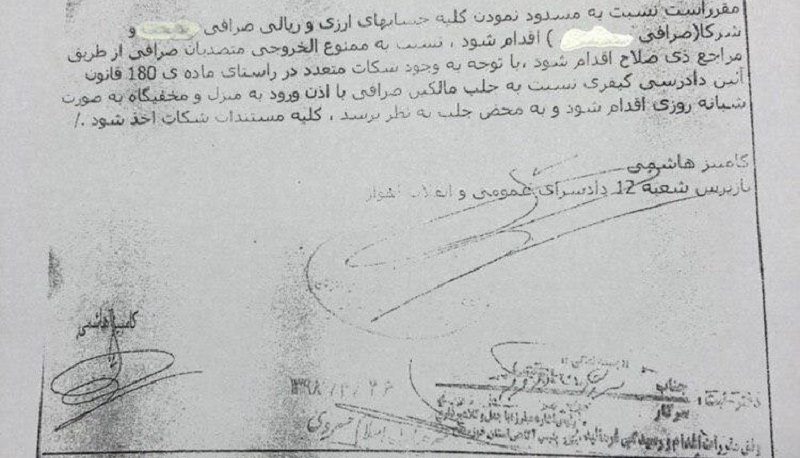 مقرراست نسبت به مسدود نمودن کلیه حسابهای ارزی و ریالی صرافی و
شرکا(صرافی ) اقدام شود ، نسبت به ممنوع الخروجی متصدیان صرافی از طریق
مراجع ذی صلاح اقدام شود ،با توجه به وجود شکات متعدد در راستای ماده ی 180 قانون
آئین دادرسی کیفری نسبت به جلب مالکین صرافی با اذن ورود به منزل و مخفیگاه به صورت
شبانه روزی اقدام شود و به محض جلب به نظر برسد ، کلیه مستندات شکات اخذ شود ./
کامبیز هاشمی
بازپرس شعبه 12 دادسرای عمومی و انقلاب اهواز
کامبیز هاشمی
۱۳۹۸/۲/۲۶
جناب
سرکار